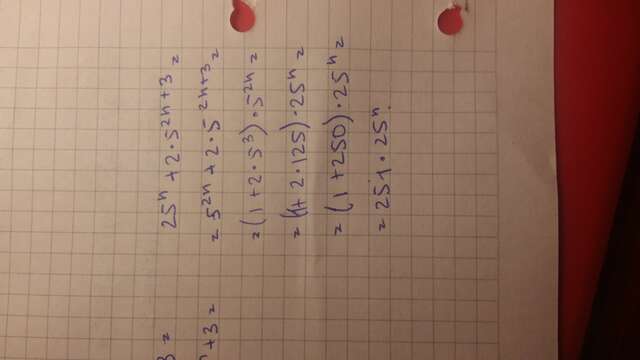 3 =
25ⁿ + 2 · 5²ⁿ⁺³ =
ⁿ + 3 =
= 5²ⁿ + 2 · 5²ⁿ⁺³ =
= (1 + 2 · 5³) · 5²ⁿ =
= (1 + 2 · 125) · 25ⁿ =
= (1 + 250) · 25ⁿ =
= 251 · 25ⁿ.